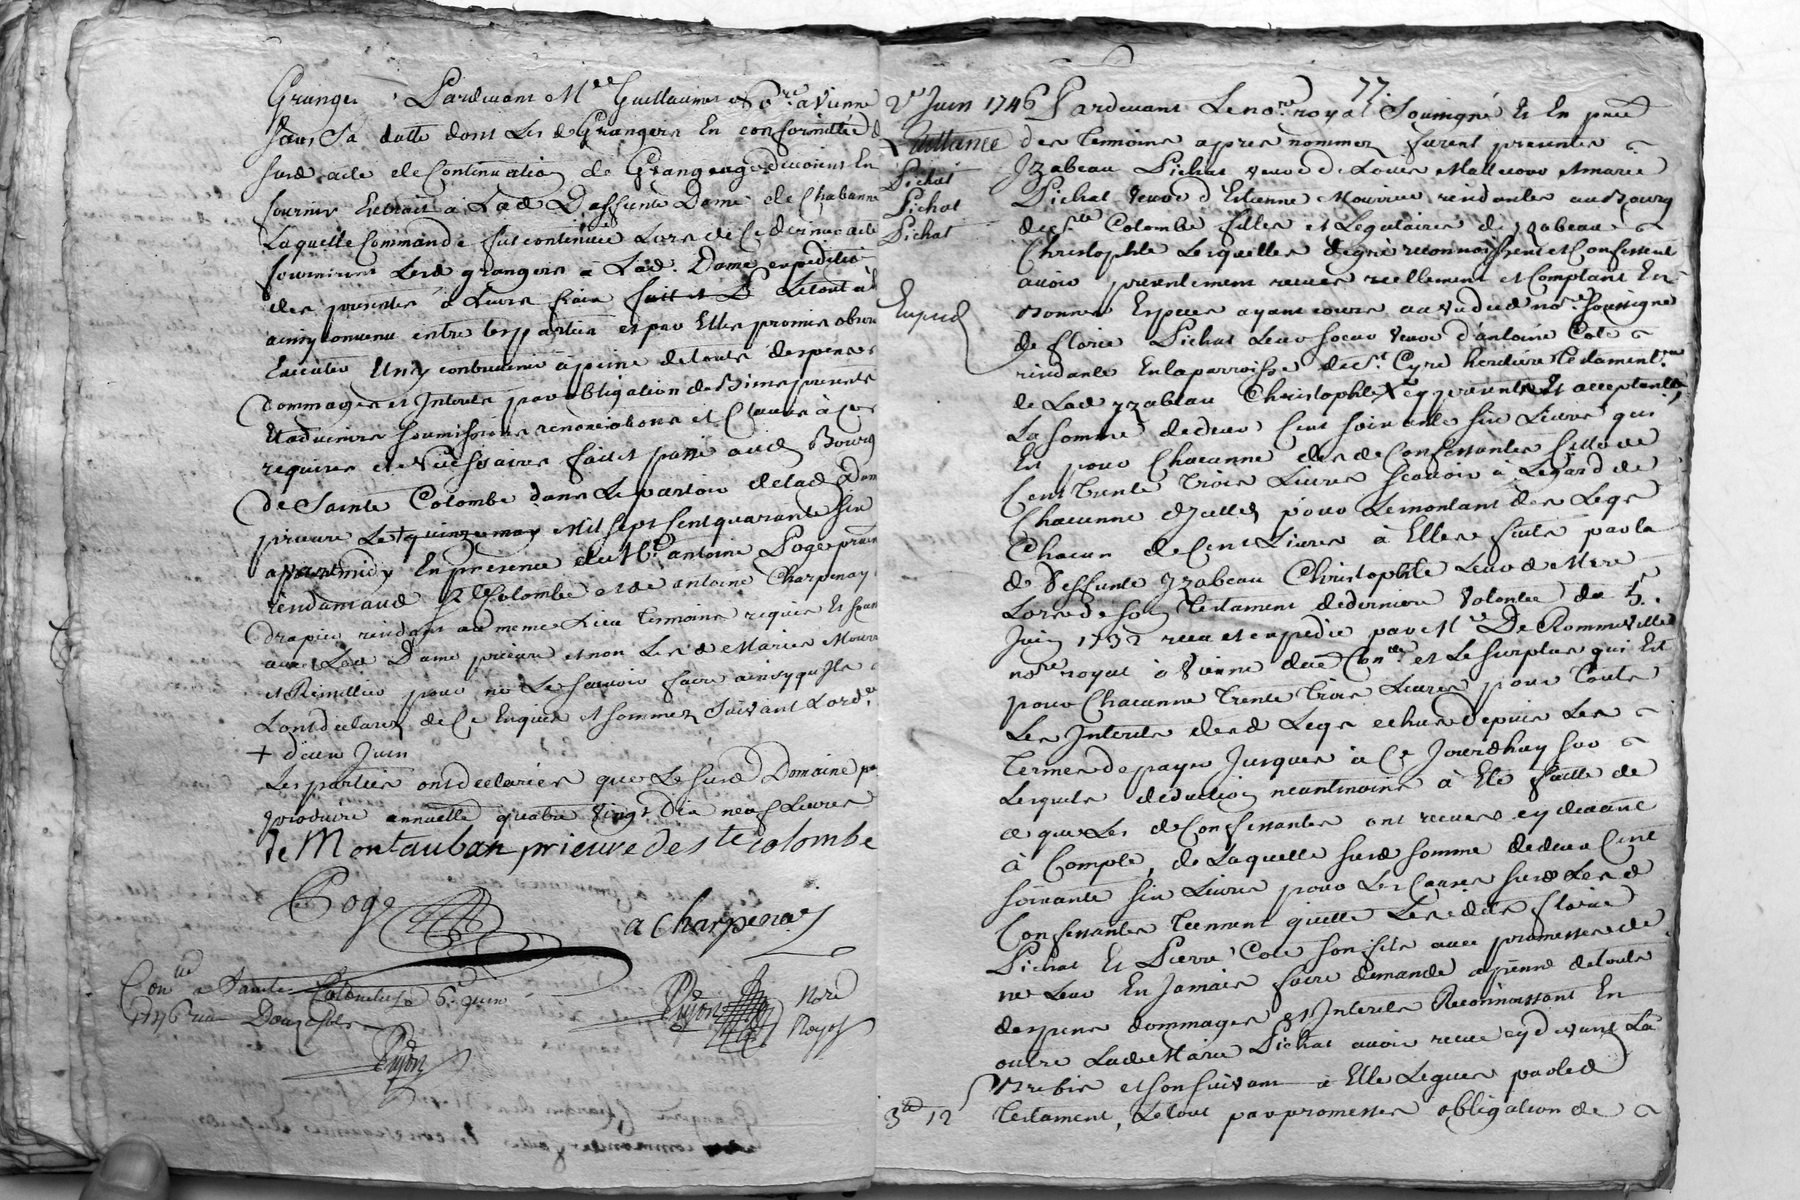 Granger Pardevant Me Guillaume No.re a Vienne
sous sa datte dont les d Grangers en conformitté d
susd acte de Continuation de Grangeage devoient en
fournir Extrait à Lad Deffunte Dame de Chabanne
Laquelle Commande fut continuée Lors de ce dernier acte
fourniront Lesd grangers à Lad. Dame expeditio
des presentes à Leurs frais fait et P Le tout a
ainsy convenu entre les parties et par Elles promis obser
Executer Et n'y contrevenir à peine de touts despens
Dommages et Interets par obligation de Biens presents
Et advenirs soumissions renonciations et Clauses à ce
requises et necessaires fait et passé aud Bourg
de Sainte Colombe dans Le parloir de lad Dam
prieure Le + quinze may Mil sept Cent quarante six
apres midy En presence de Mr antoine Poge praticien
residant aud Ste Colombe et de antoine Charpenay
drapier residant au meme Lieu temoins requis Et soussi
avec Lad Dame prieure et non Les d Maries Mouro
et Remillier pour ne Le scavoir faire ainsy qu'Ils
Lont declarez de Ce Enquis et sommez suivant Lord.ce
+ deux Juin
Les parties ont declarées que Le susd Domaine pe
produire annuelle quatre vingt dix neuf Livres
de Montauban prieure de ste colombe
Poge
a charpenay
Con.lé a Sainte Colombe le 6.e Juin
1746 Reçu Douze sols
Dujon
Dujon Nore
Royal
77.
2e Juin 1746
Quittance
Pichat
Pichat
Pichat
Exped
Pardevant Le no.re royal soussigné Et En pnce
des temoins apres nommez furent presentes
Izabeau Pichat veuve de Louis Mallevoue et marie
Pichat veuve d'Estienne Mourier residantes au Bourg
de Ste Colombe filles et Legataires de yzabeau
Christophle Lesquelles de gré reconnoissent et Confessent
avoir presentement reçues reellement et Comptant En
Bonnes Especes ayant cours au vu dud no.re soussigné
de florie Pichat Leur soeur veuve d'antoine Cote
residante En la parroisse de St. Cyre heritiere testament.re
de Lad yzabeau Christophle X cy presente Et acceptante,
La somme de deux Cent soixante six Livres qui
Est pour Chacunne des d Confessantes celle de
Cent trente trois Livres scavoir à Legard de
Chacunne d'Icelles pour Le montant des Legs
Chacun de Cent Livres à Elles faits par la
d Deffunte Izabeau Christophle Leur d Mere
Lors de son testament de derniere volonté du 5.
Juin 1732 recu et expedié par Me De Rommeville
no.re royal à Vienne due Con.lé et Le surplus qui Est
pour Chacunne trente trois Livres pour touts
Les Interets desd Legs echus depuis Les
termes de paye Jusques à Ce Jourdhuy sur
Lesquels deduction neantmoins à Eté faitte de
ce que Les d Confessantes ont reçues cy devant
à Compte, de Laquelle susd somme de deux Cent
soixante six Livres pour Les Causes susd Les d
Confessantes tiennent quitte Lesdits florie
Pichat Et Pierre Cote son fils avec promesses de
ne Leur En Jamais faire demande a peine de touts
despens dommages et Interets Reconnoissant En
outre Lad Marie Pichat avoir recue cy devant La
Brebis et son suivant à Elle Leguée par led
3.e 12
testament, Le tout par promesses obligation de